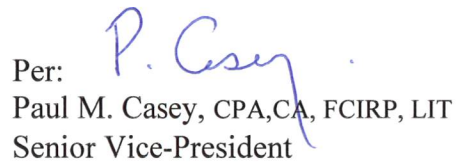 P. Casey
Per:
Paul M. Casey, CPA,CA, FCIRP, LIT
Senior Vice-President